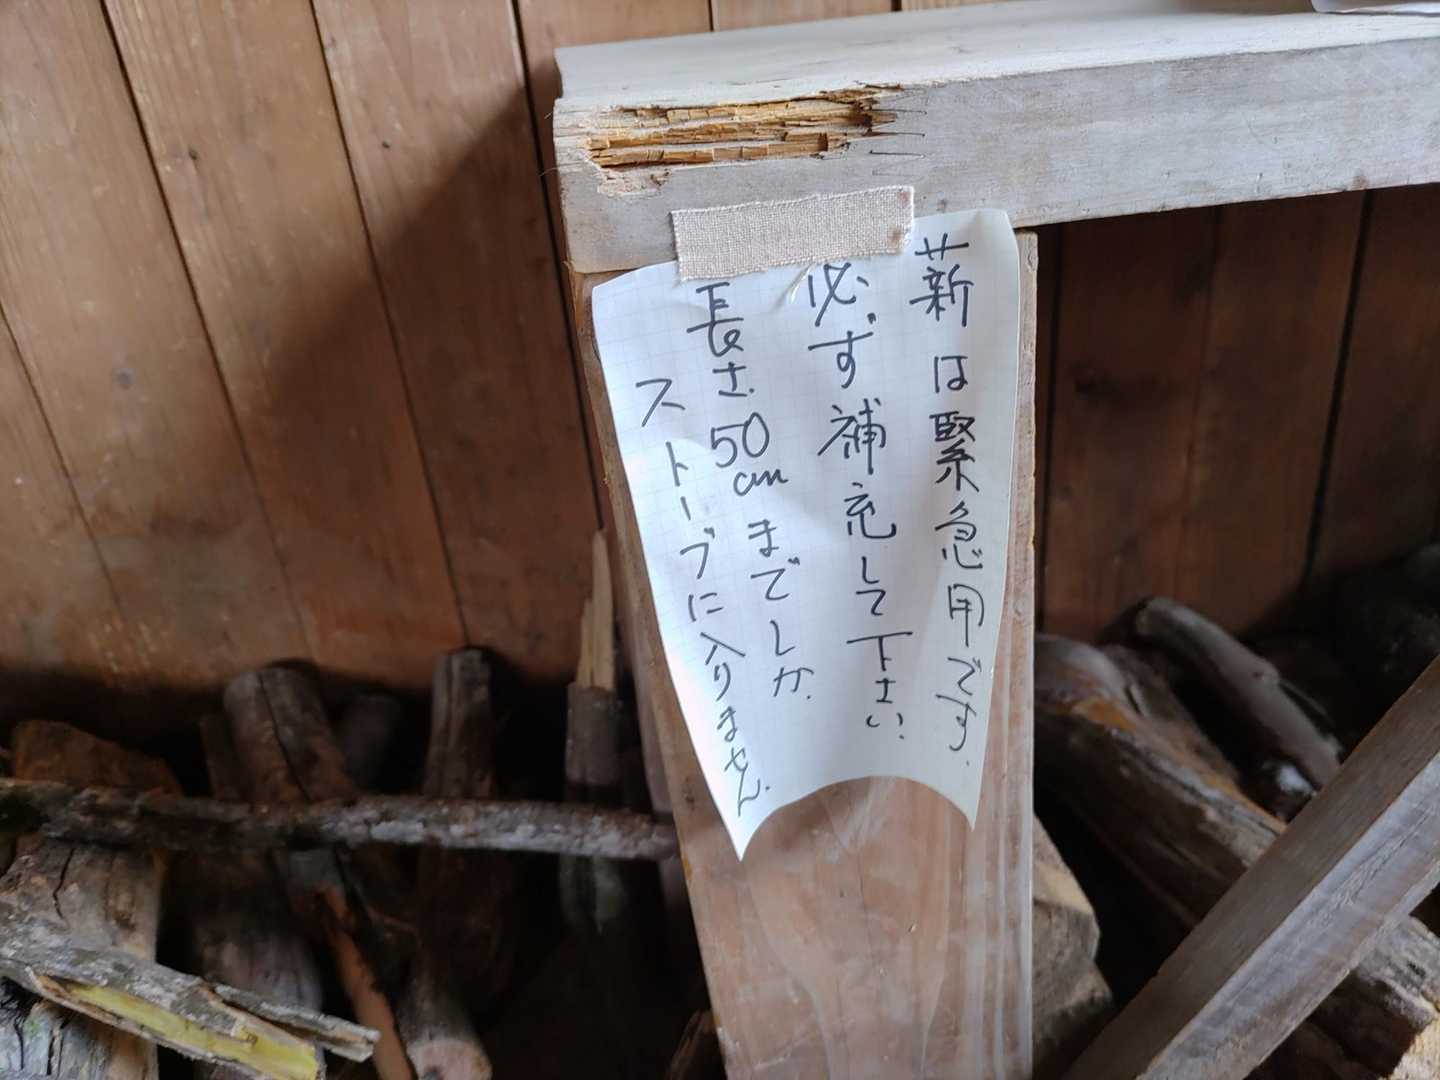 薪は緊急用です.
必ず補充して下さい.
長さ50cmまでしか.
ストーブに入りません.